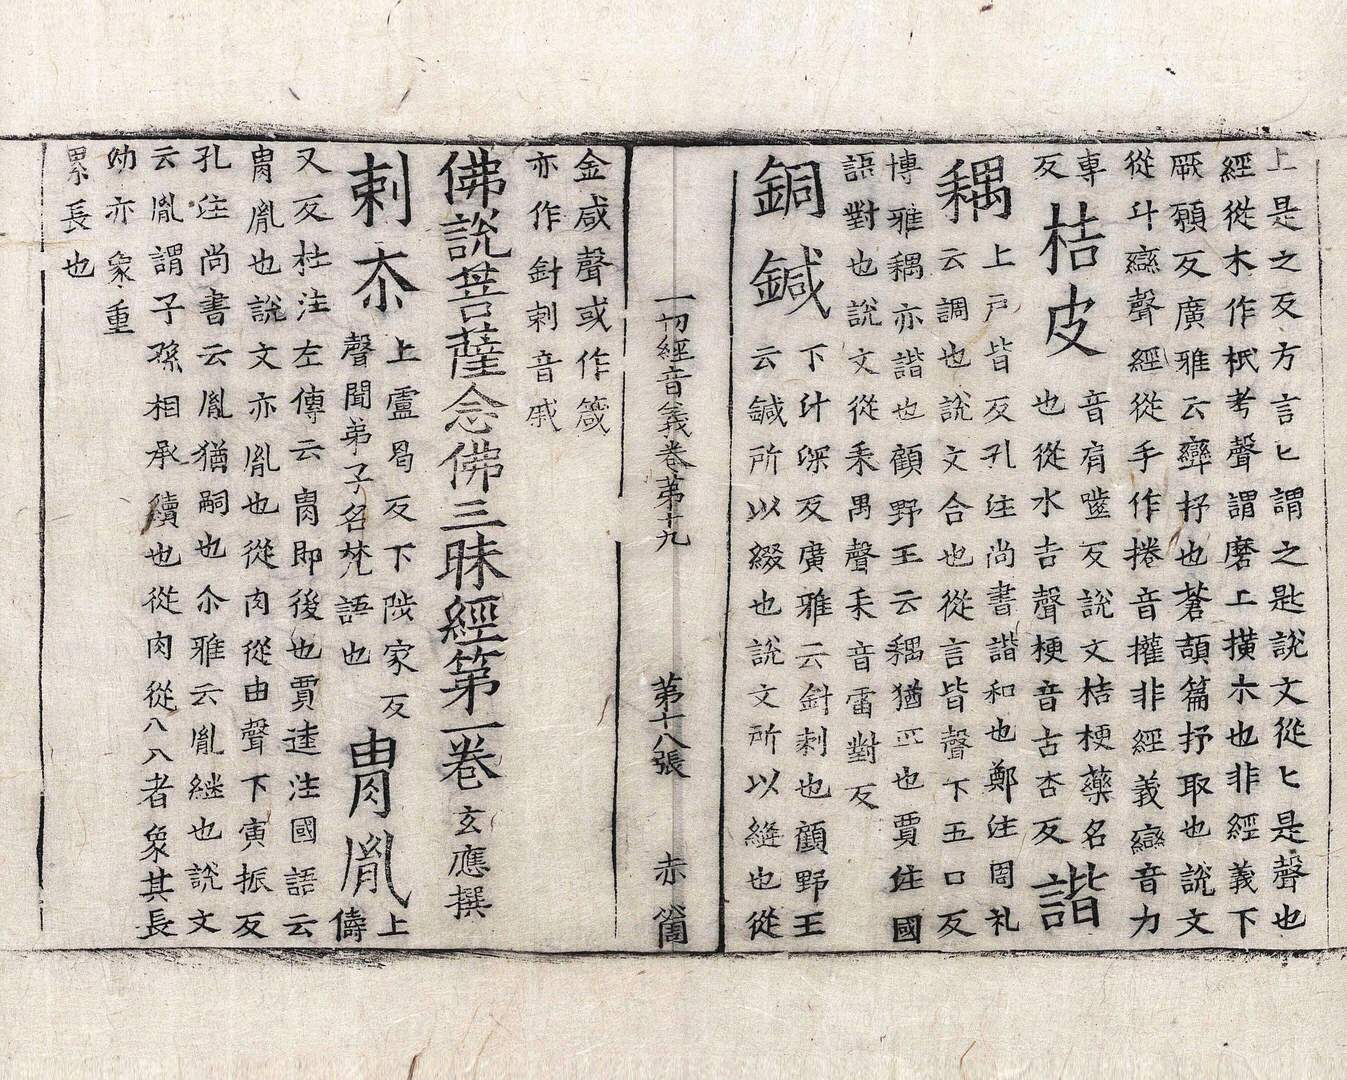 上是之反方言匕謂之匙說文從匕是聲也
經從木作枳考聲謂磨上橫木也非經義下
厥願反廣雅云㪻抒也蒼頡篇抒取也說文
從斗䜌聲經從手作捲音權非經義䜌音力
專反 桔皮 音有𪗱反說文桔梗藥名也從木吉聲梗音古杏反 諧
耦 上戸皆反孔注尚書諧和也鄭注周礼
云調也說文合也從言皆聲下五口反
博雅耦亦諧也顧野王云耦猶匹也賈住國
語對也說文從耒禺聲耒音雷對反
銅鍼 下汁深反廣雅云針刺也顧野王
云鍼所以綴也說文所以縫也從
一切經音義卷第十九 第十八張 赤
金咸聲或作箴
亦作針刺音戚
佛說菩薩念佛三昧經第一卷 玄應撰
剌奈 上盧曷反下陟家反聲聞弟子名梵語也 冑胤 上儔
又反杜注左傳云冑即後也賈逵注國語云
冑胤也說文亦胤也從肉從由聲下寅振反
孔注尚書云胤猶嗣也尒雅云胤継也說文
云胤謂子孫相承續也從肉從八八者象其長
幼亦象重
累長也